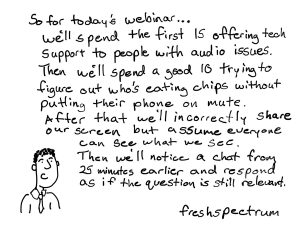 So for today's webinar...
we'll spend the first 15 offering tech
support to people with audio issues.
Then we'll spend a good 10 trying to
figure out who's eating chips without
putting their phone on mute.
After that we'll incorrectly share
our screen but assume everyone
can see what we see.
Then we'll notice a chat from
25 minutes earlier and respond
as if the question is still relevant.
freshspectrum